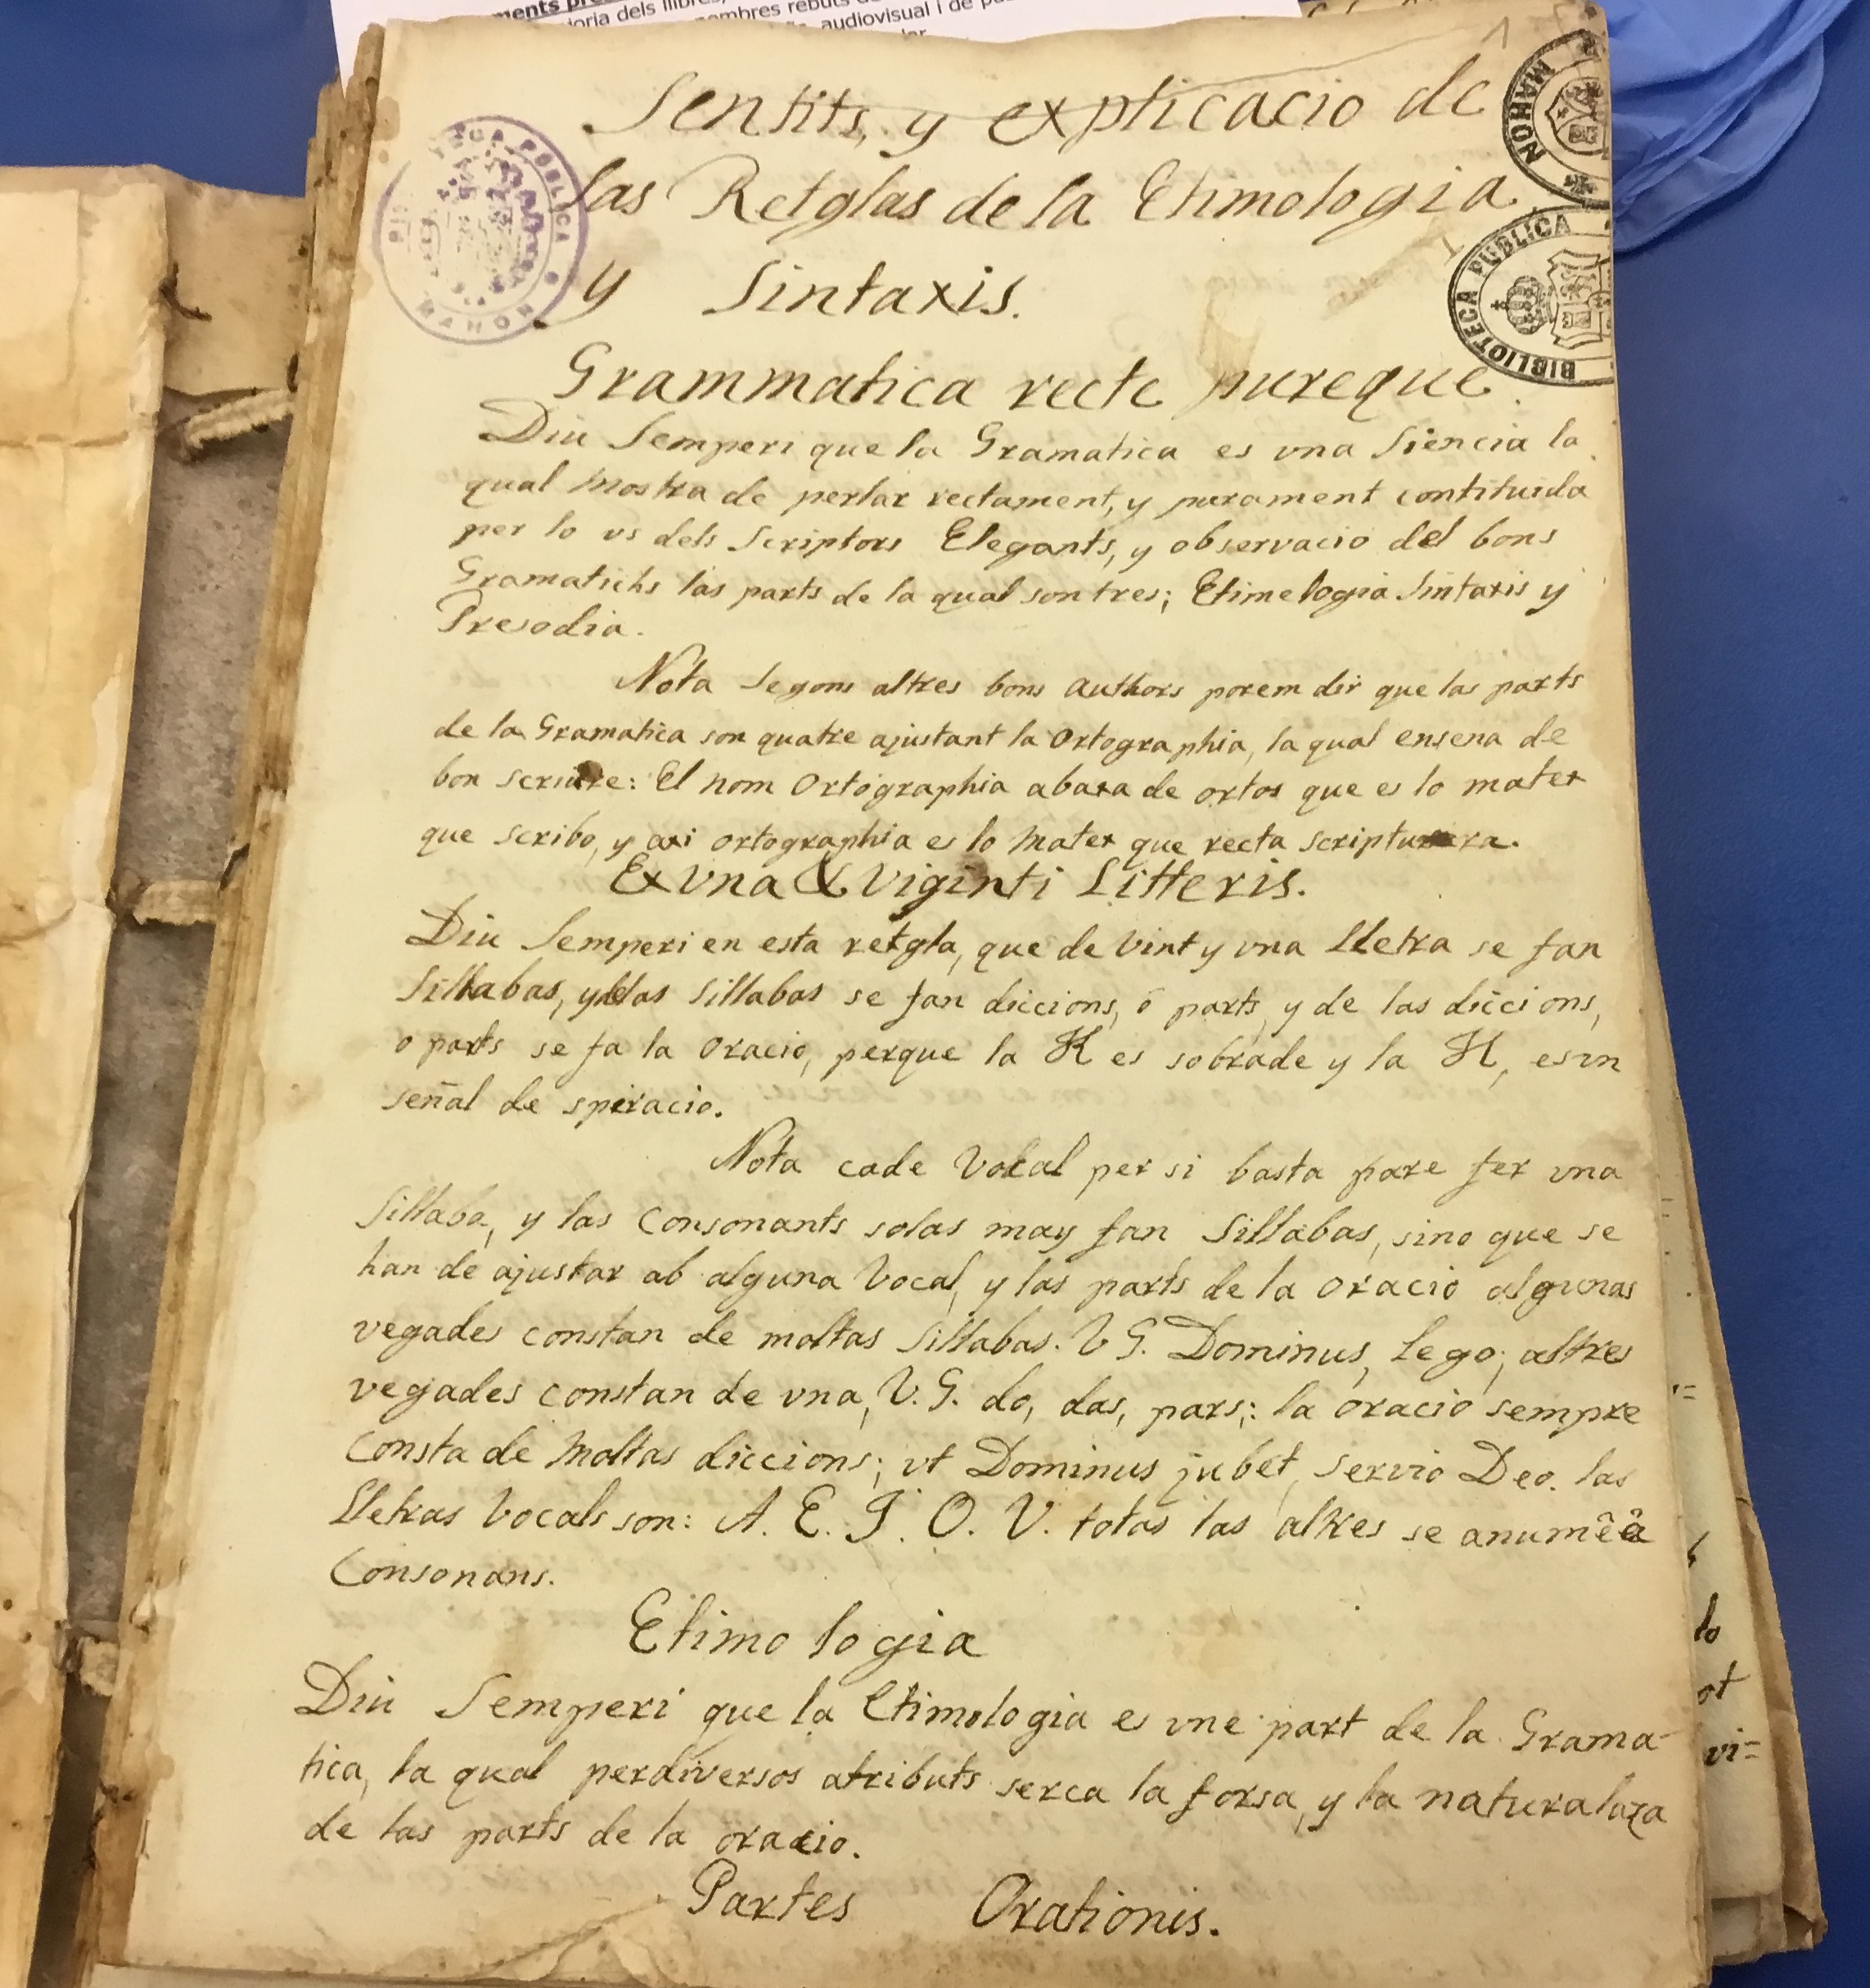 ments pre
joria dels llibres,
nombres rebuts de
audiovisual i de pa
Sentits, y explicacio de
las Retglas de la Etimologia
y Sintaxis.
BIBLIOTECA PUBLICA
MAHON
MAHON
BIBLIOTECA PUBLICA
BIBLIOTECA PÚBLICA
Grammatica recte pureque.
Diu Semperi que la Gramatica es vna Siencia la
qual Mostra de perlar rectament, y purament contituida
per lo vs dels Scriptors Elegants, y observacio del bons
Gramatichs las parts de la qual son tres; Etimelogia Sintaxis y
Presodia.
Nota Segons altres bons Authors porem dir que las parts
de la Gramatica son quatre ajustant la Ortographia, la qual ensena de
bon scriure: El nom Ortographia abaxa de ortos que es lo matex
que scribo, y axi ortographia es lo matex que recta scriptura.
Ex vna & viginti Litteris.
Diu Semperi en esta retgla, que de vint y vna Lletra se fan
Sillabas, y de las Sillabas se fan diccions, o parts, y de las diccions,
o parts se fa la Oracio, perque la K es sobrade y la H, es vn
señal de spiracio.
Nota cade Vocal per si basta pare fer vna
Sillaba, y las Consonants solas may fan Sillabas, sino que se
han de ajustar ab alguna Vocal, y las parts de la oracio algunas
vegades constan de moltas Sillabas. V G. Dominus, Lego; altres
vegades constan de vna, V. G. do, das, pars;: la oracio sempre
Consta de Moltas diccions; vt Dominus jubet, servio Deo. las
Lletras Vocals son: A. E. I. O. V. totas las altres se anumêã
Consonans.
Etimologia
Diu Semperi que la Etimologia es vne part de la Grama-
tica, la qual per diversos atributs serca la forsa, y la naturalaza
de las parts de la oracio.
Partes Orationis.
lo
ot
vi=